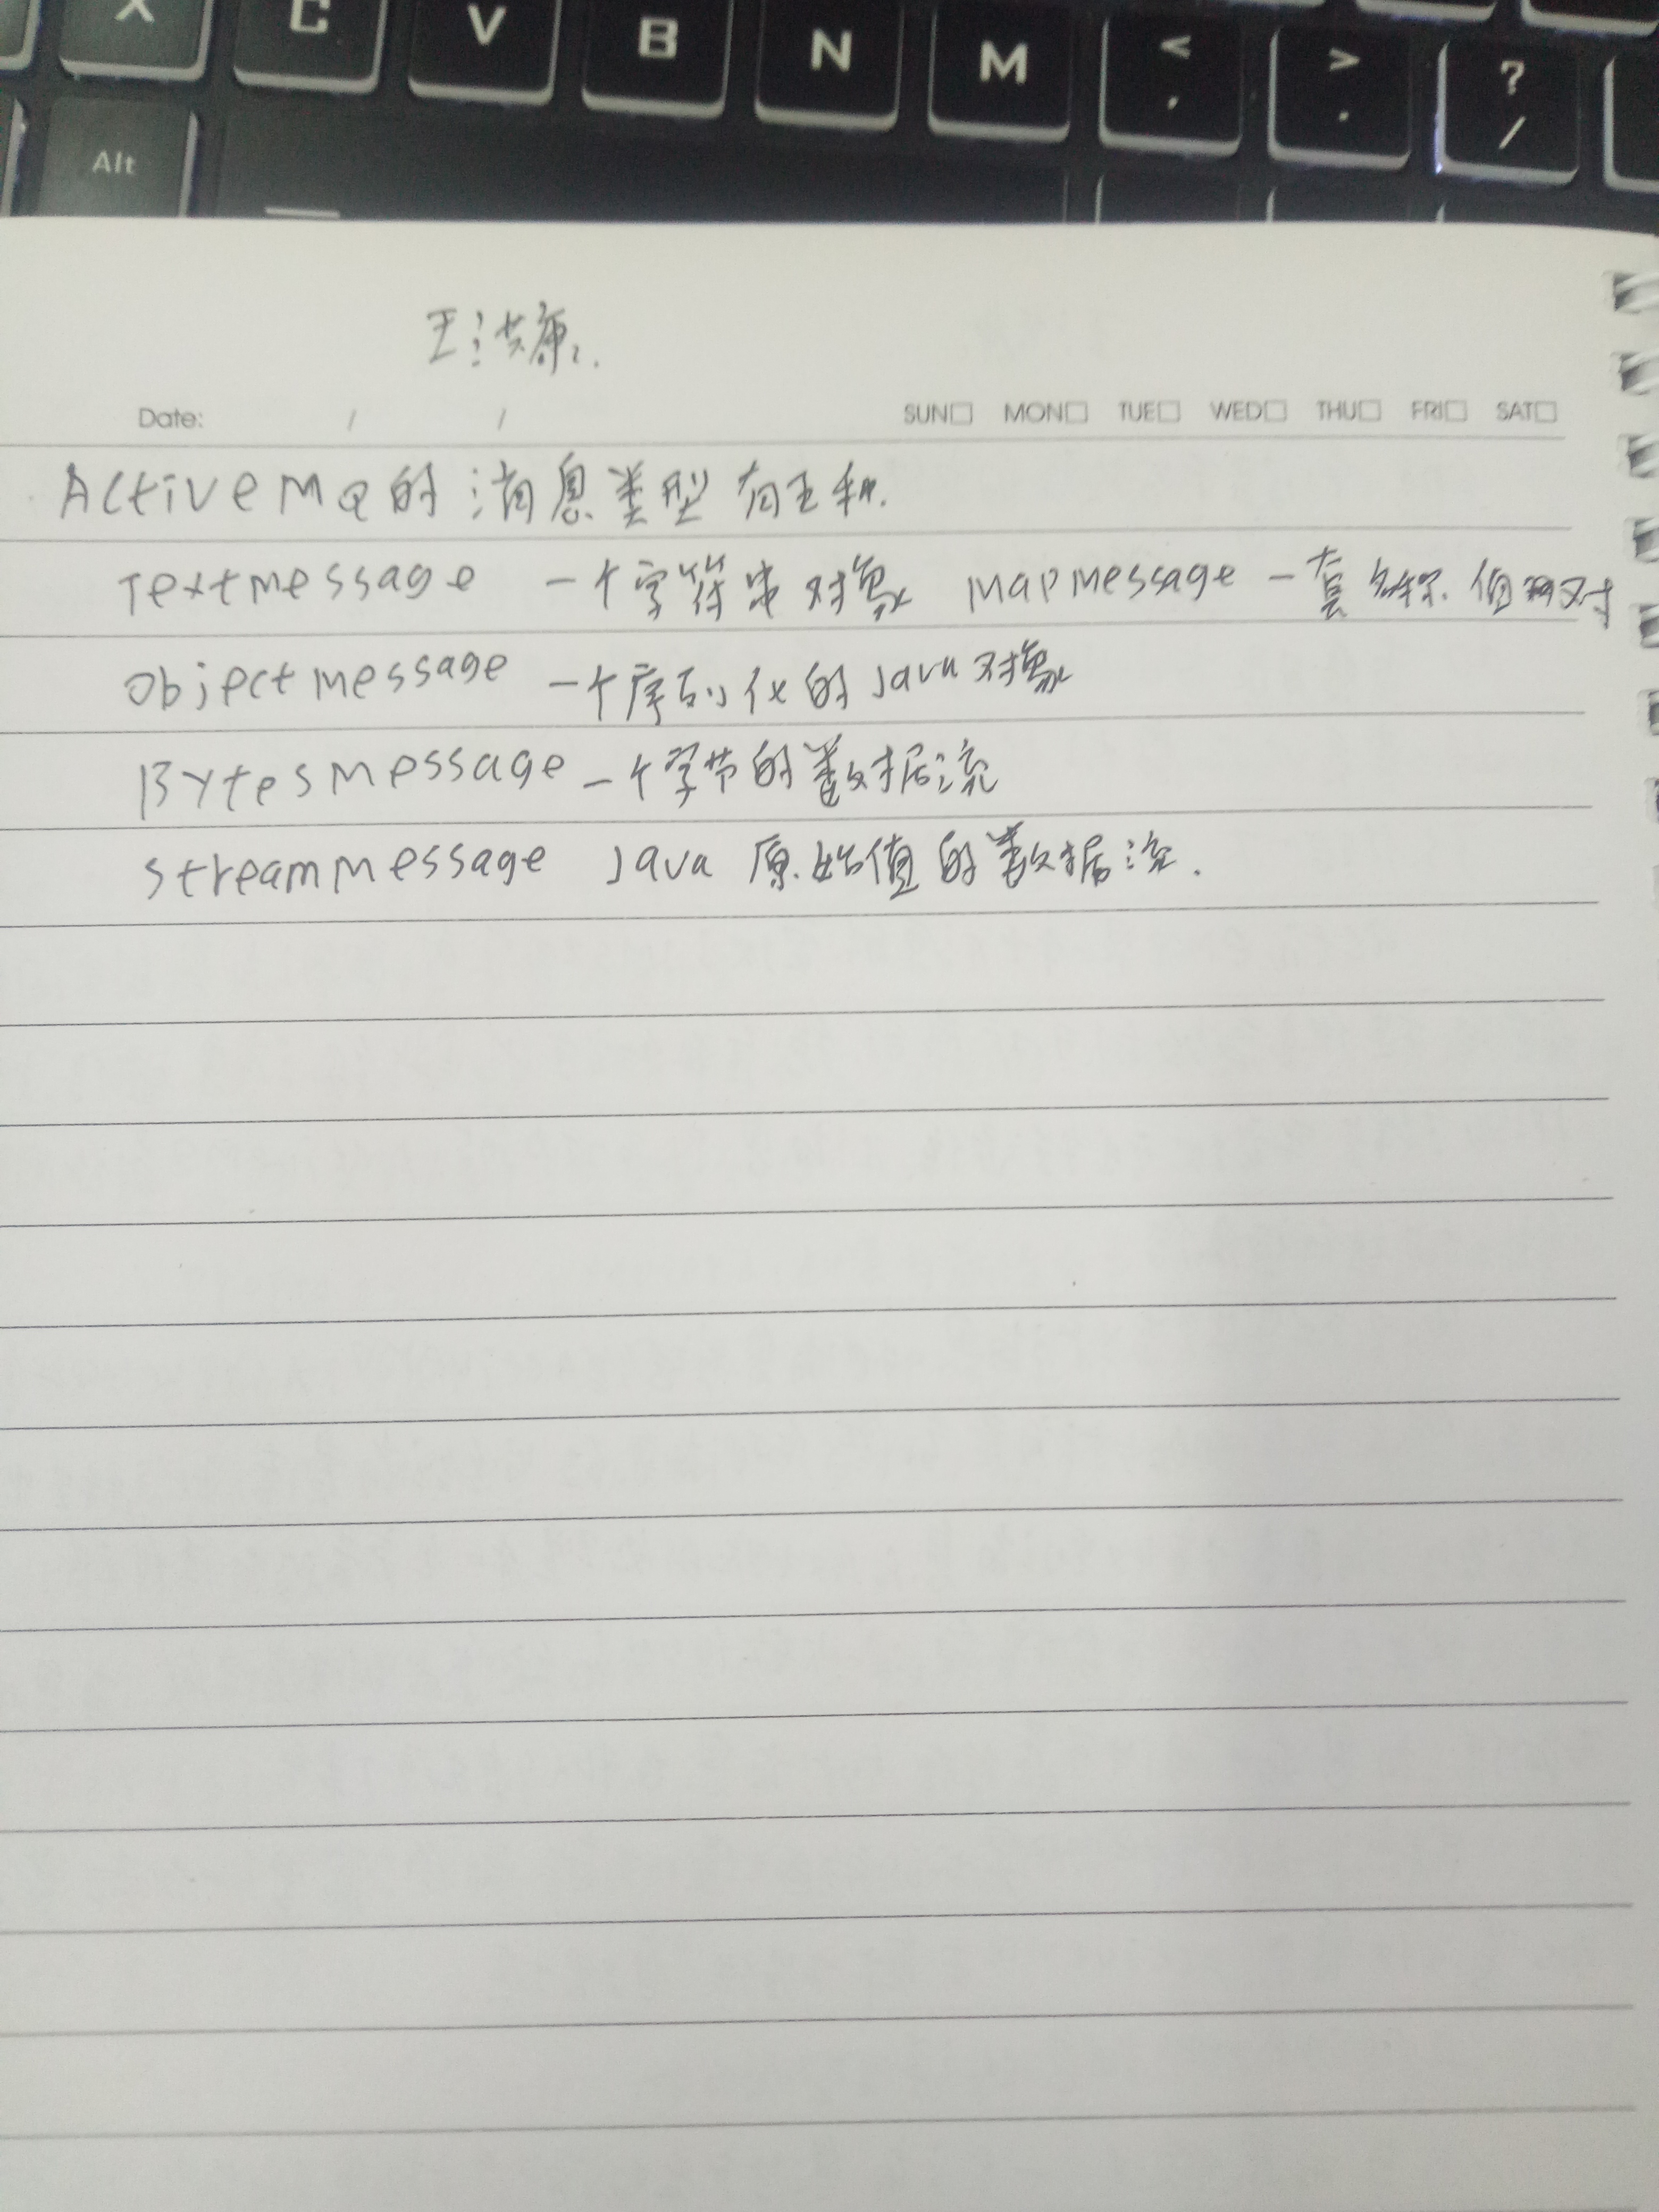 X C V B N M < , > . ? /
Alt
王洪康.
Date: / / SUN□ MON□ TUE□ WED□ THU□ FRI□ SAT□
ActiveMQ的消息类型有五种.
Textmessage 一个字符串对象 MapMessage 一套名称 值对
ObjectMessage 一个序列化的Java对象
BytesMessage 一个字节的数据流
StreamMessage Java 原始值的数据流.